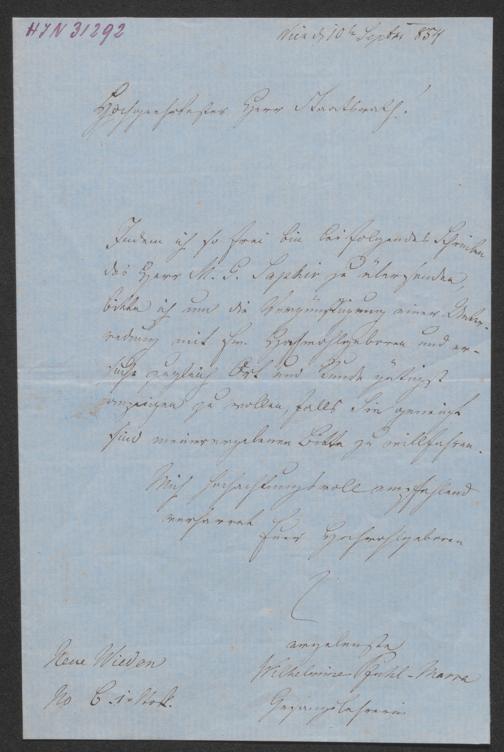 HJN 31292
Wien d 10te Septbr 854
Hochgeehrtester Herr Staatsrath!
Indem ich so frei bin beifolgendes Schreiben
des Herr M. G. Saphir zu übersenden,
bitte ich um die Vergünstigung einer Unter-
redung mit Eur. Hochwohlgeboren und er-
suche zugleich Ort und Stunde gütigst
anzeigen zu wollen, falls Sie geneigt
sind meiner ergebenen Bitte zu willfahren.
Mich hochachtungsvoll empfehlend
verharret
Euer Hochwohlgeboren
ergebenste
Neue Wieden
Wilhelmine -Marra
No 6
Gesangslehrerin